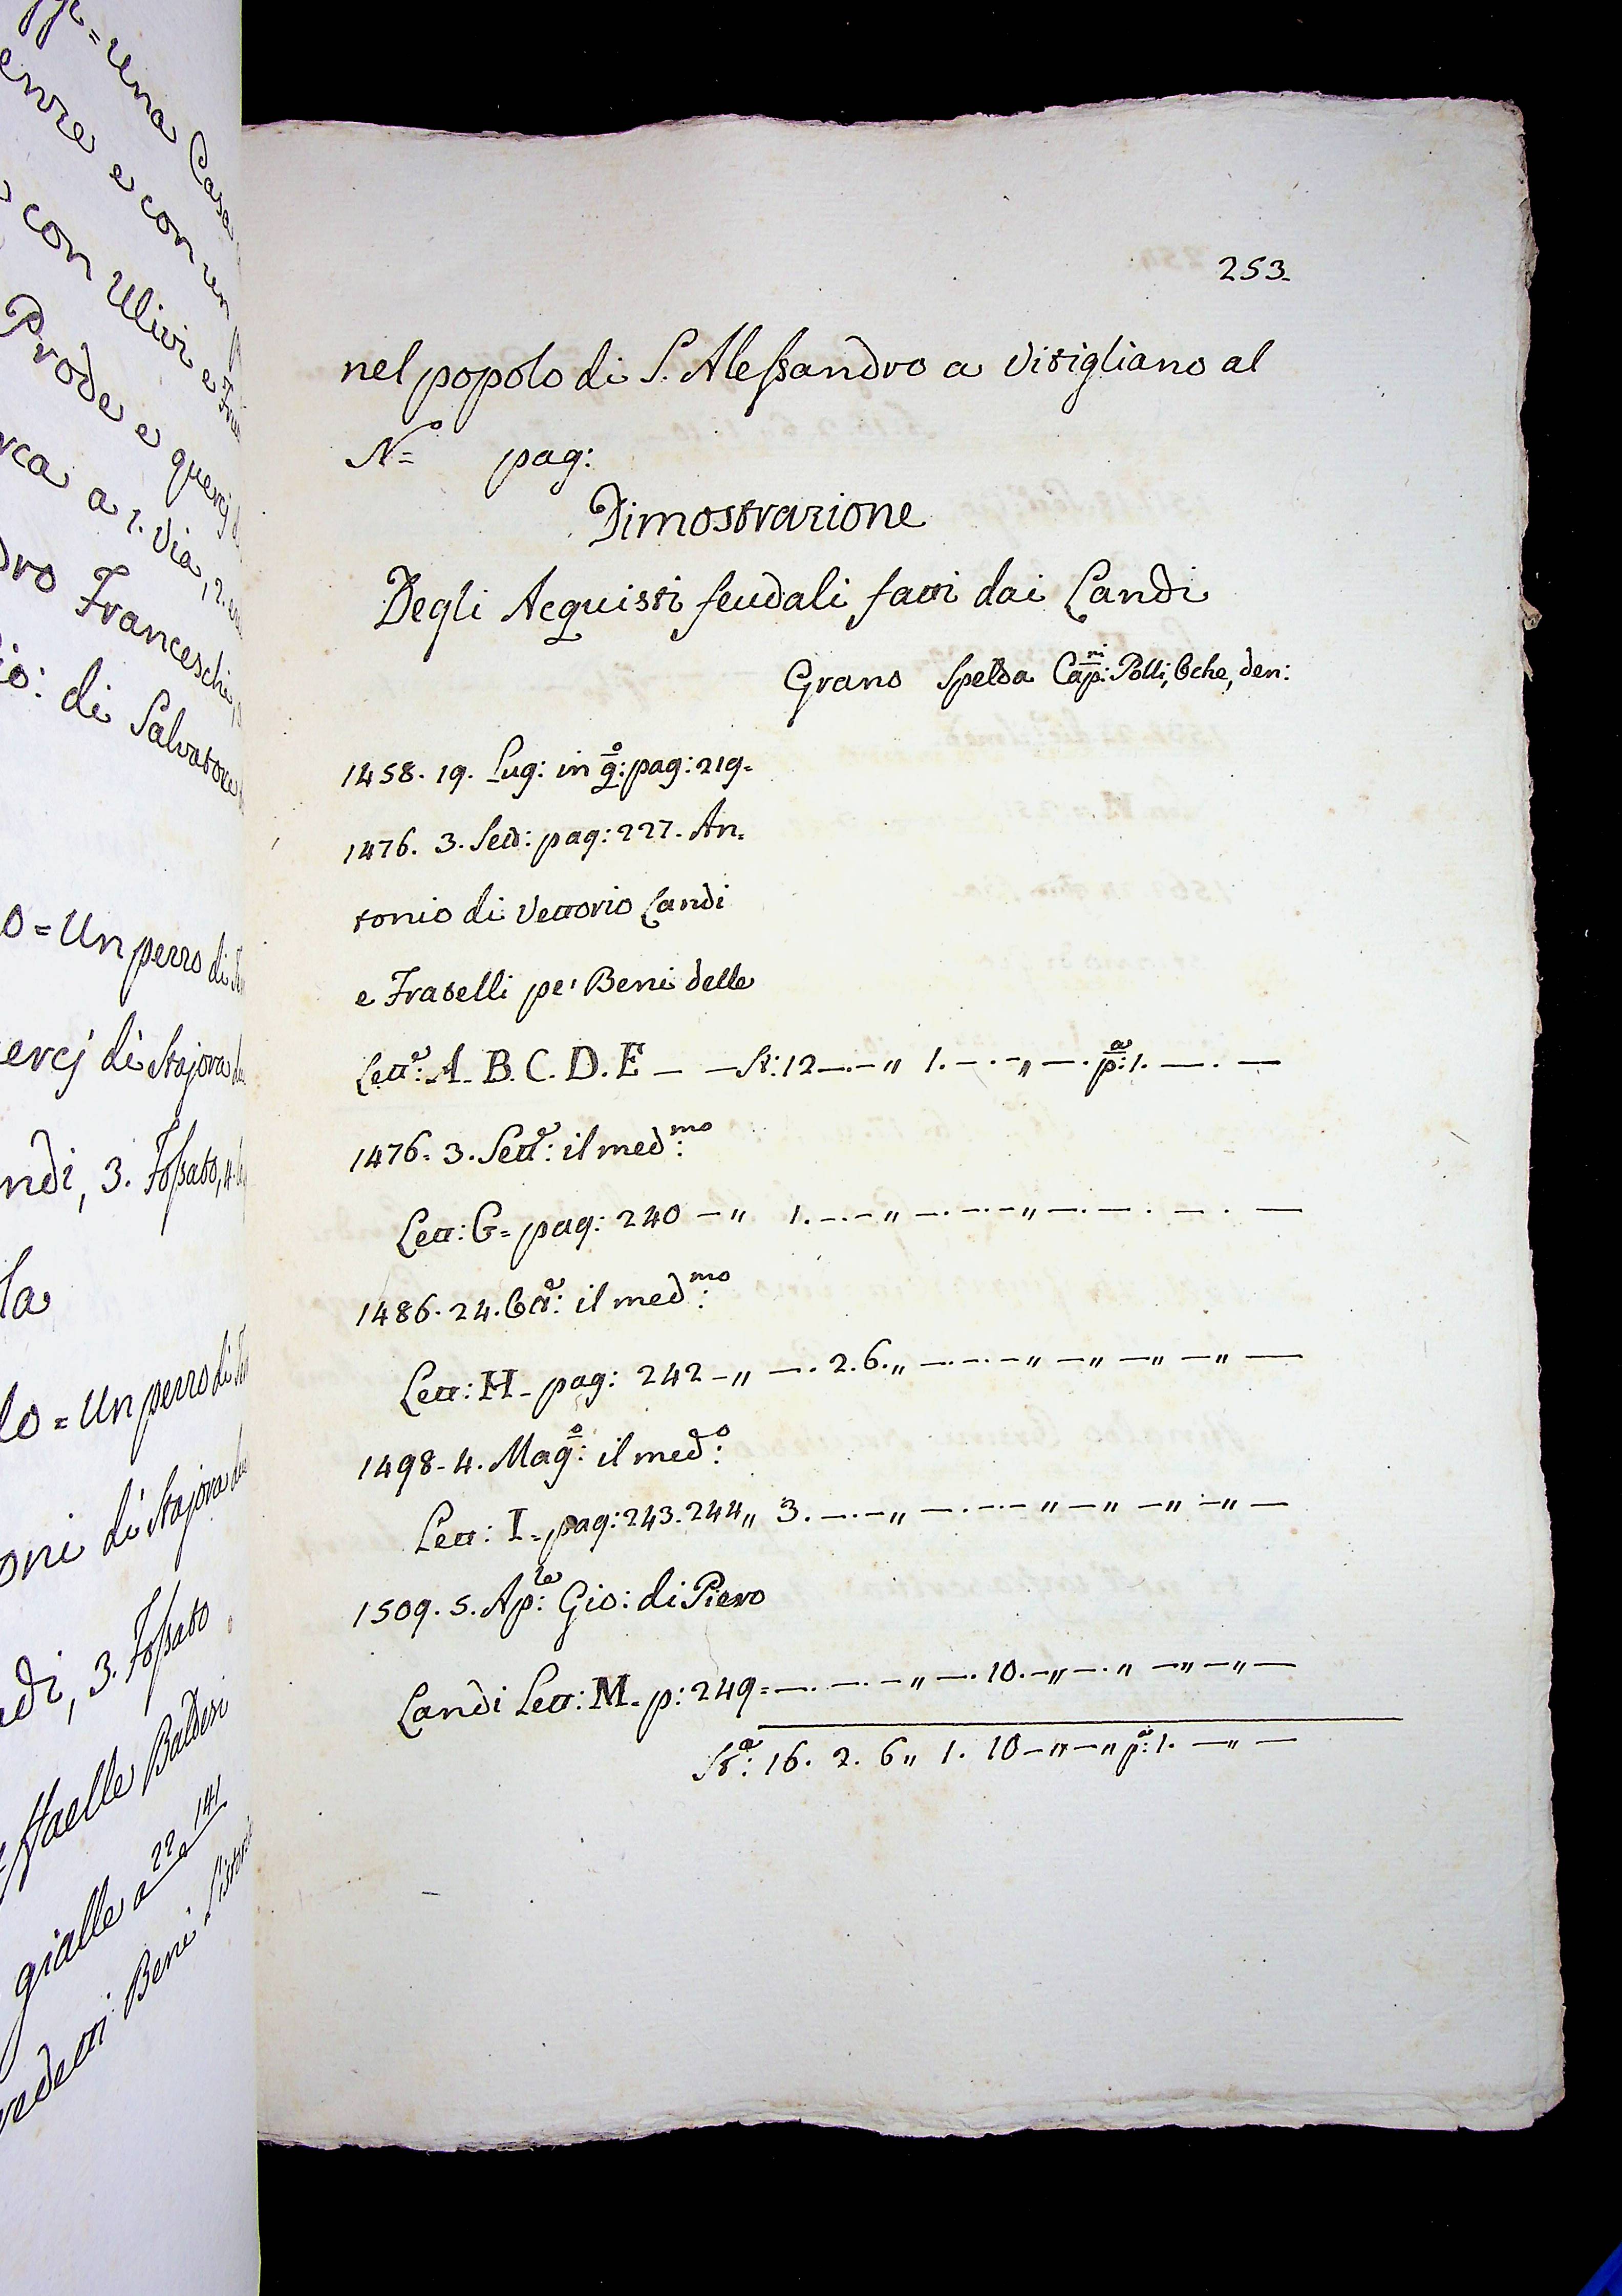 253.
nel popolo di S. Alessandro a Vitigliano al
N.º pag:
Dimostrazione
Degli Acquisti feudali fatti dai Landi
Grano Spelta Cap:ni Polli, Oche, den:
1458. 19. Lug: in q:o pag: 219.
1476. 3. Sett: pag: 227. An=
tonio di Vettorio Landi
e Fratelli pe' Beni delle
Lett:e A. B. C. D. E — — St: 12 —.—„ 1. —.—„ —. p:a 1. —. —
1476. 3. Sett:e il med:mo
Lett: G= pag: 240 —„ 1. —.—„ —.—.—„ —.—. —. —
1486. 24. Ott:e il med:mo
Lett: H- pag: 242 —„ —. 2. 6.„ —.—.—„ —„ —„ —„ —
1498. 4. Mag:o il med:o
Lett: I= pag: 243. 244„ 3. —.—„ —.—.—„ —„ —„ —„ —
1509. 5. Ap:le Gio: di Piero
Landi Lett: M. p: 249= —. —. —„ —. 10. —„ —. „ —„ —„ —
St:a 16. 2. 6„ 1. 10 —„ —„ p:a 1. —„ —
una Casa
e con un
con Ulivi e
Prode e quercj
a 1. Via, 2.
Franceschi,
di Salvatore
= Un pezzo di
di Stajora
3. Fossato, 4.
la
= Un pezzo di
di Stajora
3. Fossato
Baldesi
gialle a 22 e 141
Beni